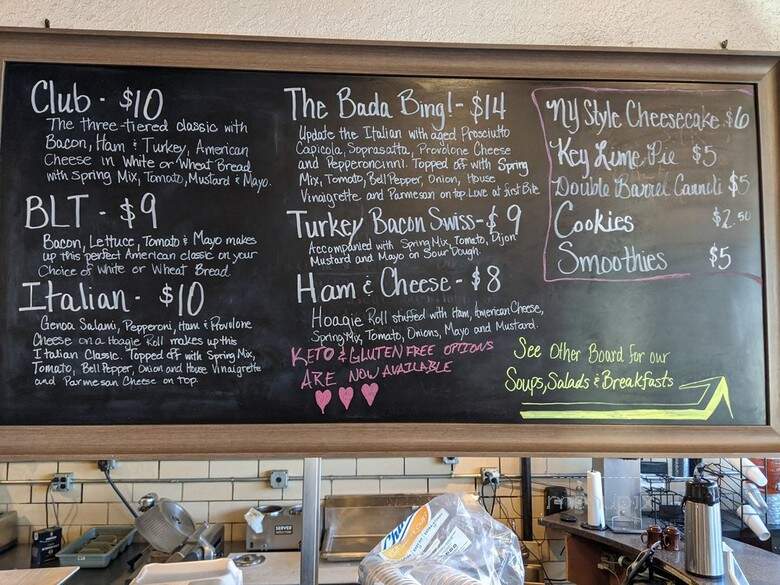 Club - $10
The three-tiered classic with
Bacon, Ham & Turkey, American
Cheese in White or Wheat Bread
with Spring Mix, Tomato, Mustard & Mayo.
BLT - $9
Bacon, Lettuce, Tomato & Mayo makes
up this perfect American classic on your
Choice of White or Wheat Bread.
Italian - $10
Genoa Salami, Pepperoni, Ham & Provolone
Cheese on a Hoagie Roll makes up this
Italian Classic. Topped off with Spring Mix,
Tomato, Bell Pepper, Onion and House Vinaigrette
and Parmesan Cheese on top.
The Bada Bing! - $14
Update the Italian with aged Prosciutto
Capicola, Soprasatta, Provolone Cheese
and Pepperoncinni. Topped off with Spring
Mix, Tomato, Bell Pepper, Onion, House
Vinaigrette and Parmesan on top Love at first Bite
Turkey Bacon Swiss - $9
Accompanied with Spring Mix, Tomato, Dijon
Mustard and Mayo on Sour Dough.
Ham & Cheese - $8
Hoagie Roll stuffed with Ham, American Cheese,
Spring Mix, Tomato, Onions, Mayo and Mustard.
KETO & GLUTEN FREE OPTIONS
ARE NOW AVAILABLE
NY Style Cheesecake $6
Key Lime Pie $5
Double Barrel Cannoli $5
Cookies $2.50
Smoothies $5
See Other Board for our
Soups, Salads & Breakfasts
SERVER